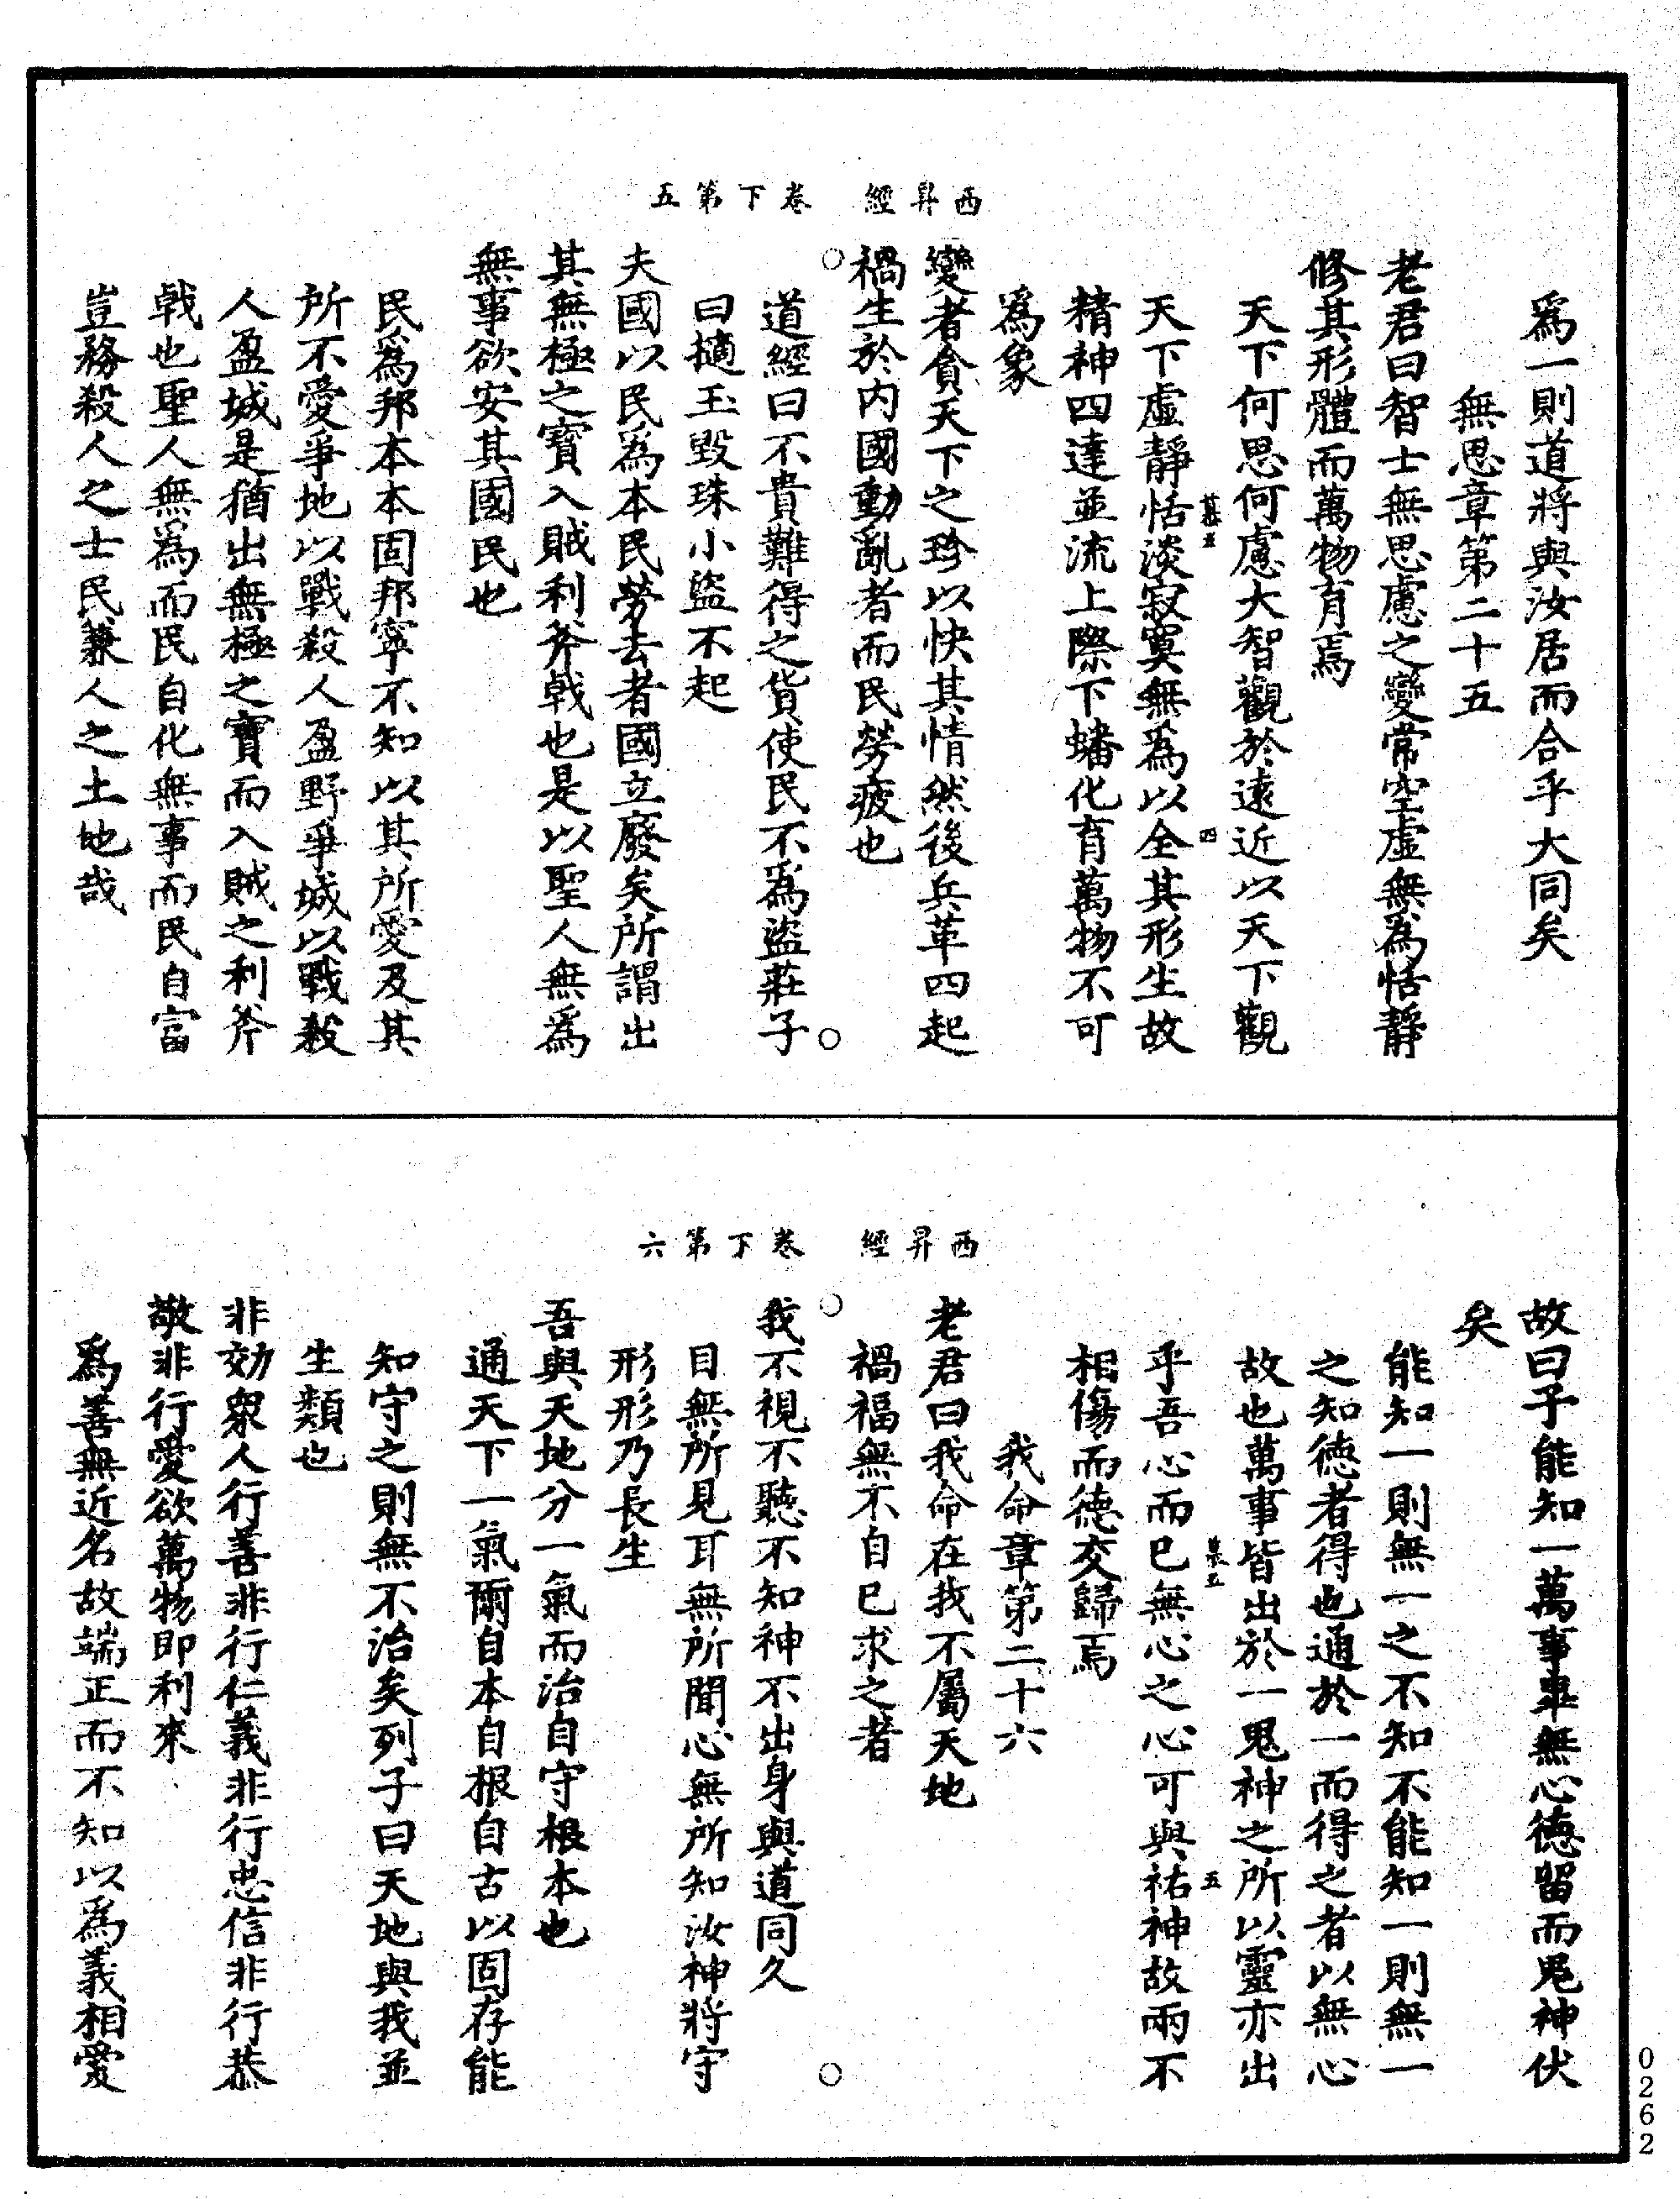 西昇經　卷下第五
爲一則道將與汝居而合乎大同矣
無思章第二十五
老君曰智士無思慮之變常空虛無爲恬靜
修其形體而萬物育焉
天下何思何慮大智觀於遠近以天下觀
慕五　四
天下虛靜恬淡寂寞無爲以全其形生故
精神四達並流上際下蟠化育萬物不可
爲象
變者貪天下之珍以快其情然後兵革四起
禍生於内國動亂者而民勞疲也
道經曰不貴難得之貨使民不爲盜莊子
曰擿玉毀珠小盜不起
夫國以民爲本民勞去者國立廢矣所謂出
其無極之寳入賊利斧戟也是以聖人無爲
無事欲安其國民也
民爲邦本本固邦寧不知以其所愛及其
所不愛爭地以戰殺人盈野爭城以戰殺
人盈城是猶出無極之寶而入賊之利斧
戟也聖人無爲而民自化無事而民自富
豈務殺人之士民兼人之土地哉
西昇經　卷下第六
故曰子能知一萬事畢無心德留而鬼神伏
矣
能知一則無一之不知不能知一則無一
之知德者得也通於一而得之者以無心
故也萬事皆出於一鬼神之所以靈亦出
慕五　五
乎吾心而已無心之心可與祐神故兩不
相傷而德交歸焉
我命章第二十六
老君曰我命在我不屬天地
禍福無不自已求之者
我不視不聽不知神不出身與道同久
目無所見耳無所聞心無所知汝神將守
形形乃長生
吾與天地分一氣而治自守根本也
通天下一氣爾自本自根自古以固存能
知守之則無不治矣列子曰天地與我並
生類也
非効衆人行善非行仁義非行忠信非行恭
敬非行愛欲萬物即利來
爲善無近名故端正而不知以爲義相愛
0262